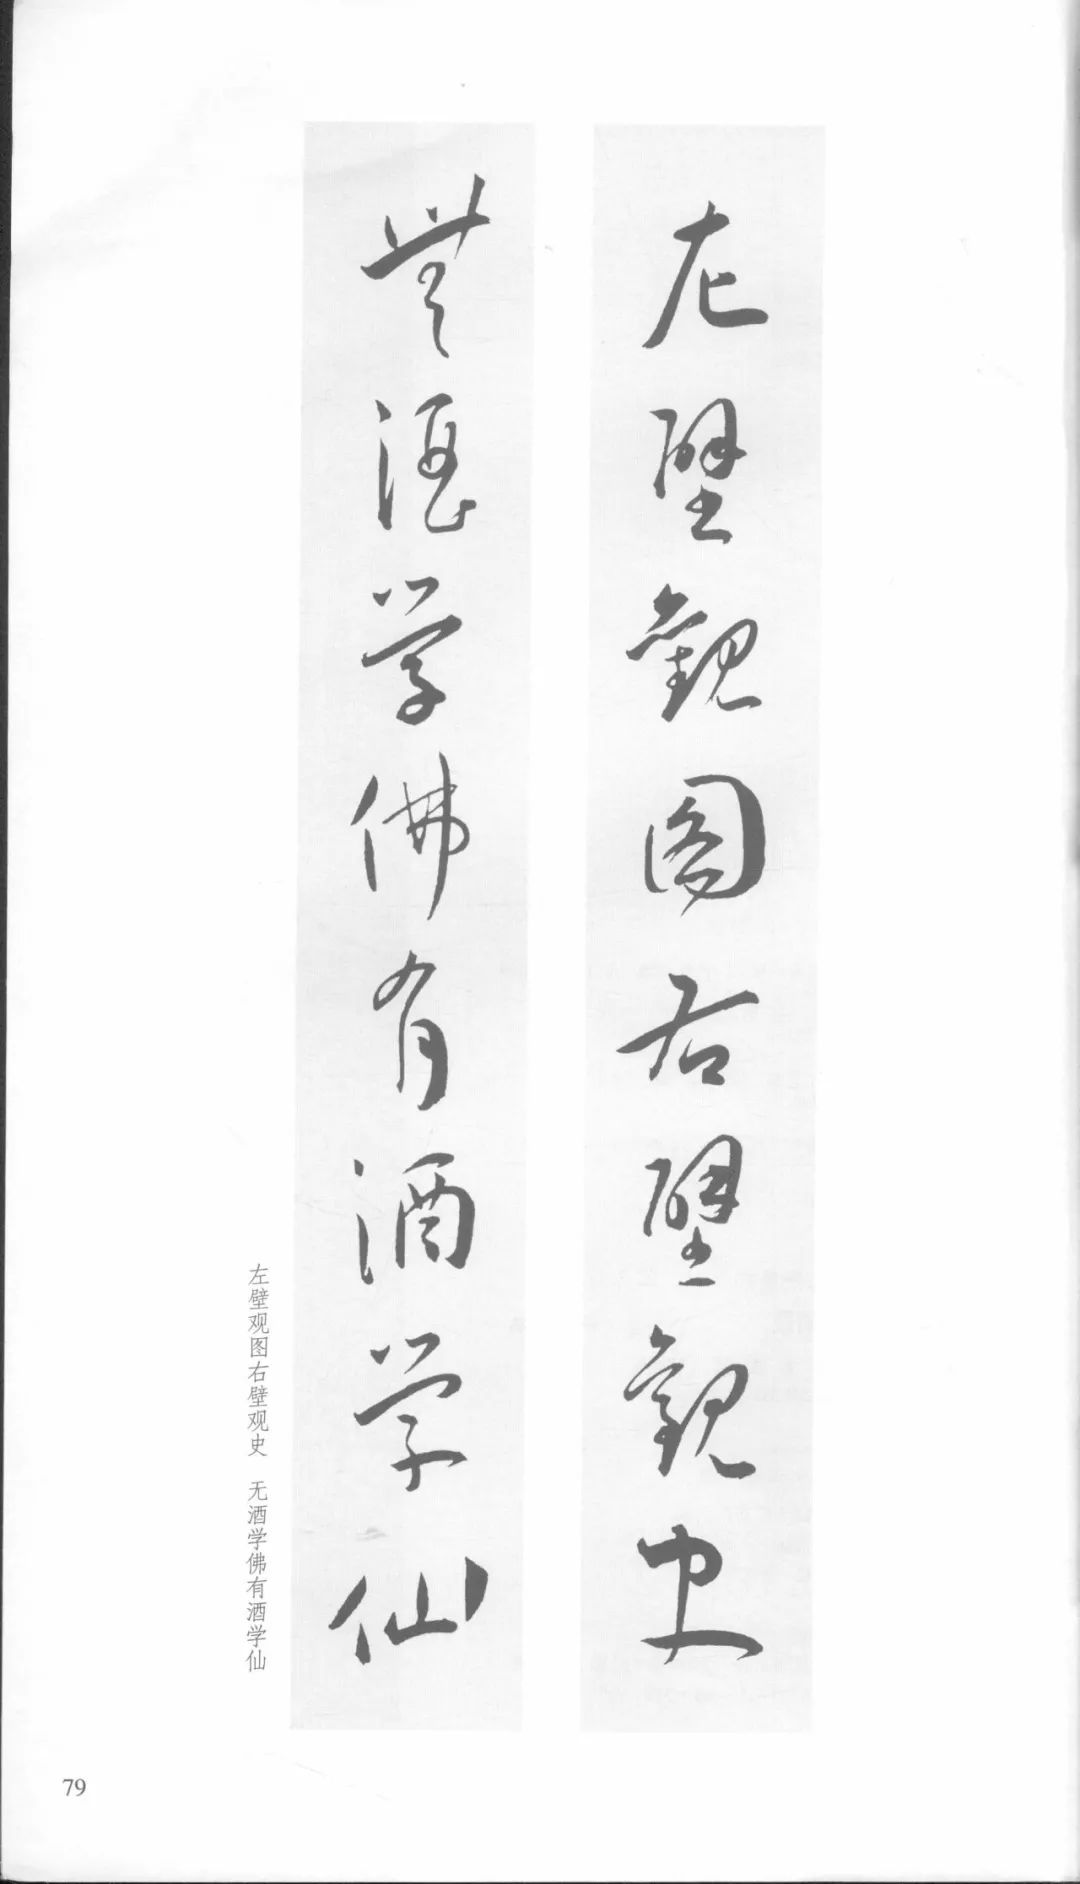 左壁觀图右壁觀史
無酒学佛有酒学仙
左壁观图右壁观史　无酒学佛有酒学仙
79